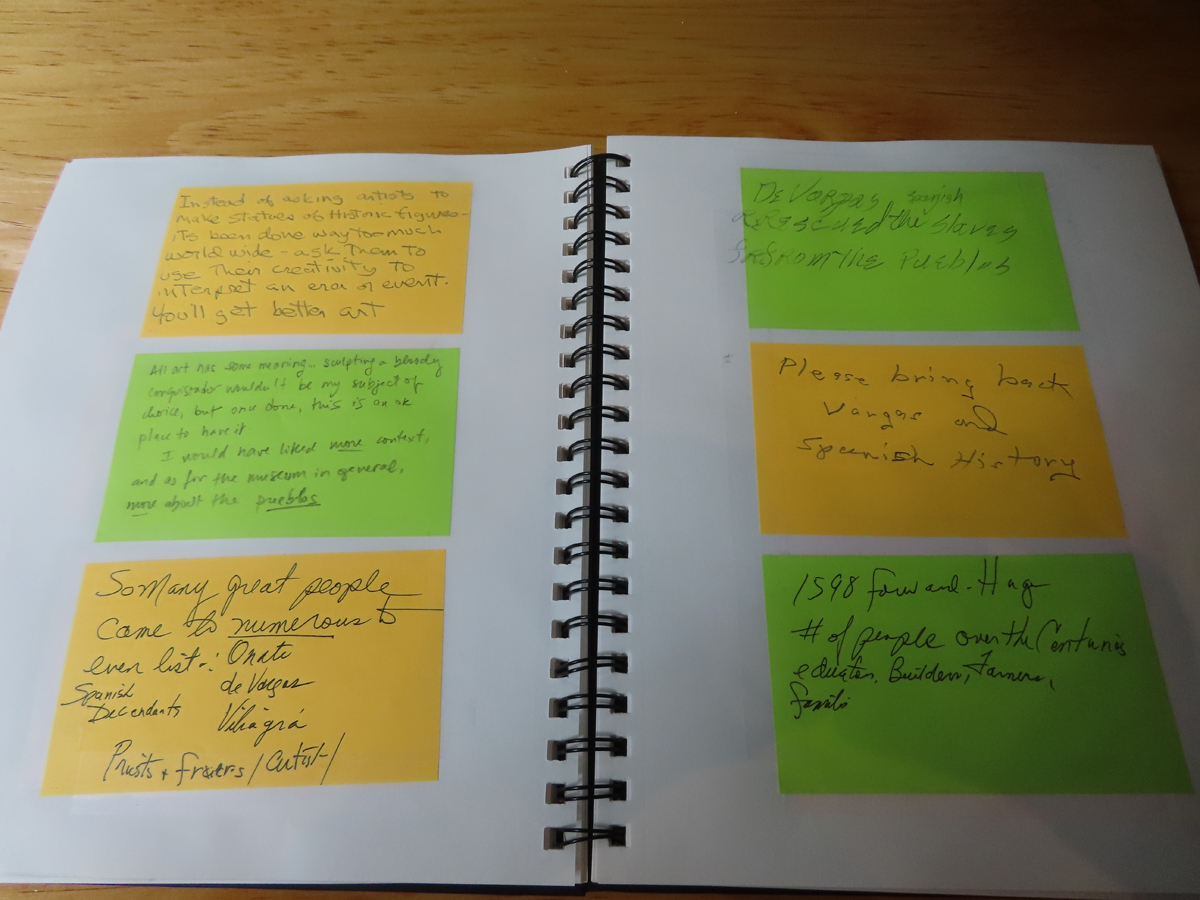 Instead of asking artists to
make statues of Historic figures -
its been done way too much
world wide - ask Them to
use Their creativity To
interpret an era or event.
You'll get better art
All art has some meaning... sculpting a bloody
conquistador wouldn't be my subject of
choice, but once done, this is an ok
place to have it
I would have liked more context,
and as for the museum in general,
more about the pueblos
So Many great people
came to numerous to
even list -: Onate
Spanish de Vargas
Decendants Villagrá
Priests + friars / artist /
De Vargas Spanish
Rescued the Slaves
From the Pueblos
Please bring back
Vargas and
Spanish History
1598 forward - Huge
# of people over the Centuries
educators, Builders, Farmers,